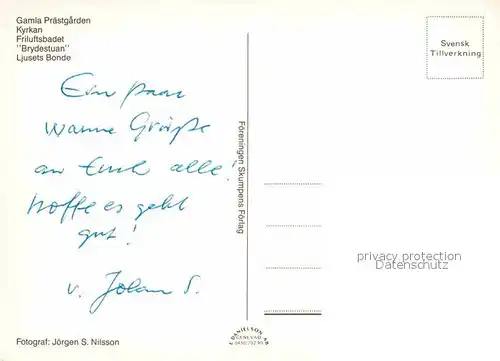 Gamla Prästgården
Kyrkan
Friluftsbadet
"Brydestuan"
Ljusets Bonde
Svensk
Tillverkning
Ein paar
warme Grüße
an Euch alle!
hoffe es geht
gut!
v. Johan S.
Föreningen Skumpens Förlag
privacy protection
Datenschutz
Fotograf: Jörgen S. Nilsson
DANIELSON
GENEVAD